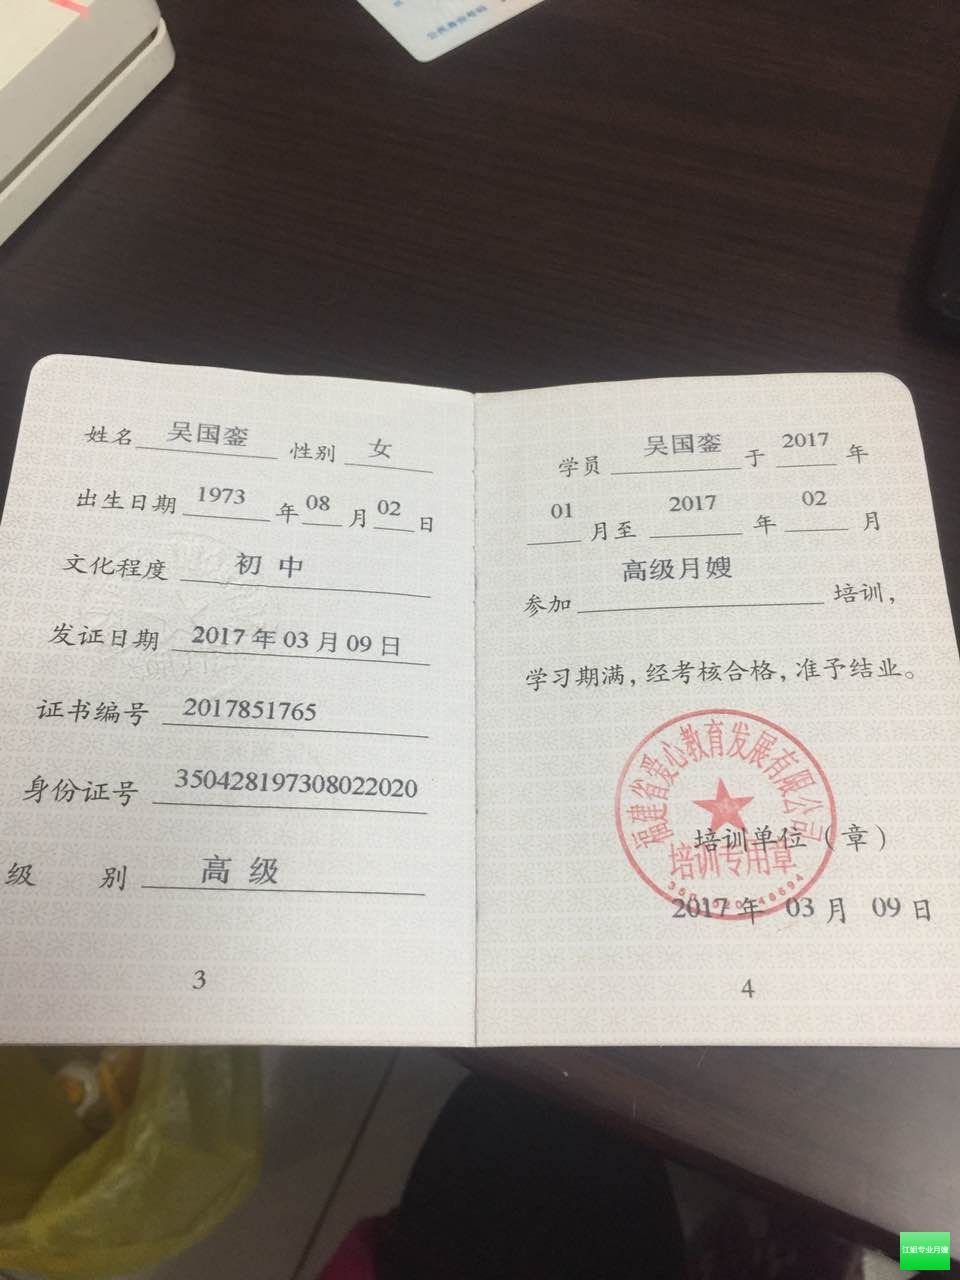 公民身份号码
姓名 吴国銮 性别 女
出生日期 1973 年 08 月 02 日
文化程度 初中
发证日期 2017 年 03 月 09 日
证书编号 2017851765
身份证号 350428197308022020
级 别 高级
3
学员 吴国銮 于 2017 年
01 月至 2017 年 02 月
参加 高级月嫂 培训，
学习期满，经考核合格，准予结业。
福建省爱心教育发展有限公司
培训单位（章）
培训专用章
2017 年 03 月 09 日
4
江姐专业月嫂